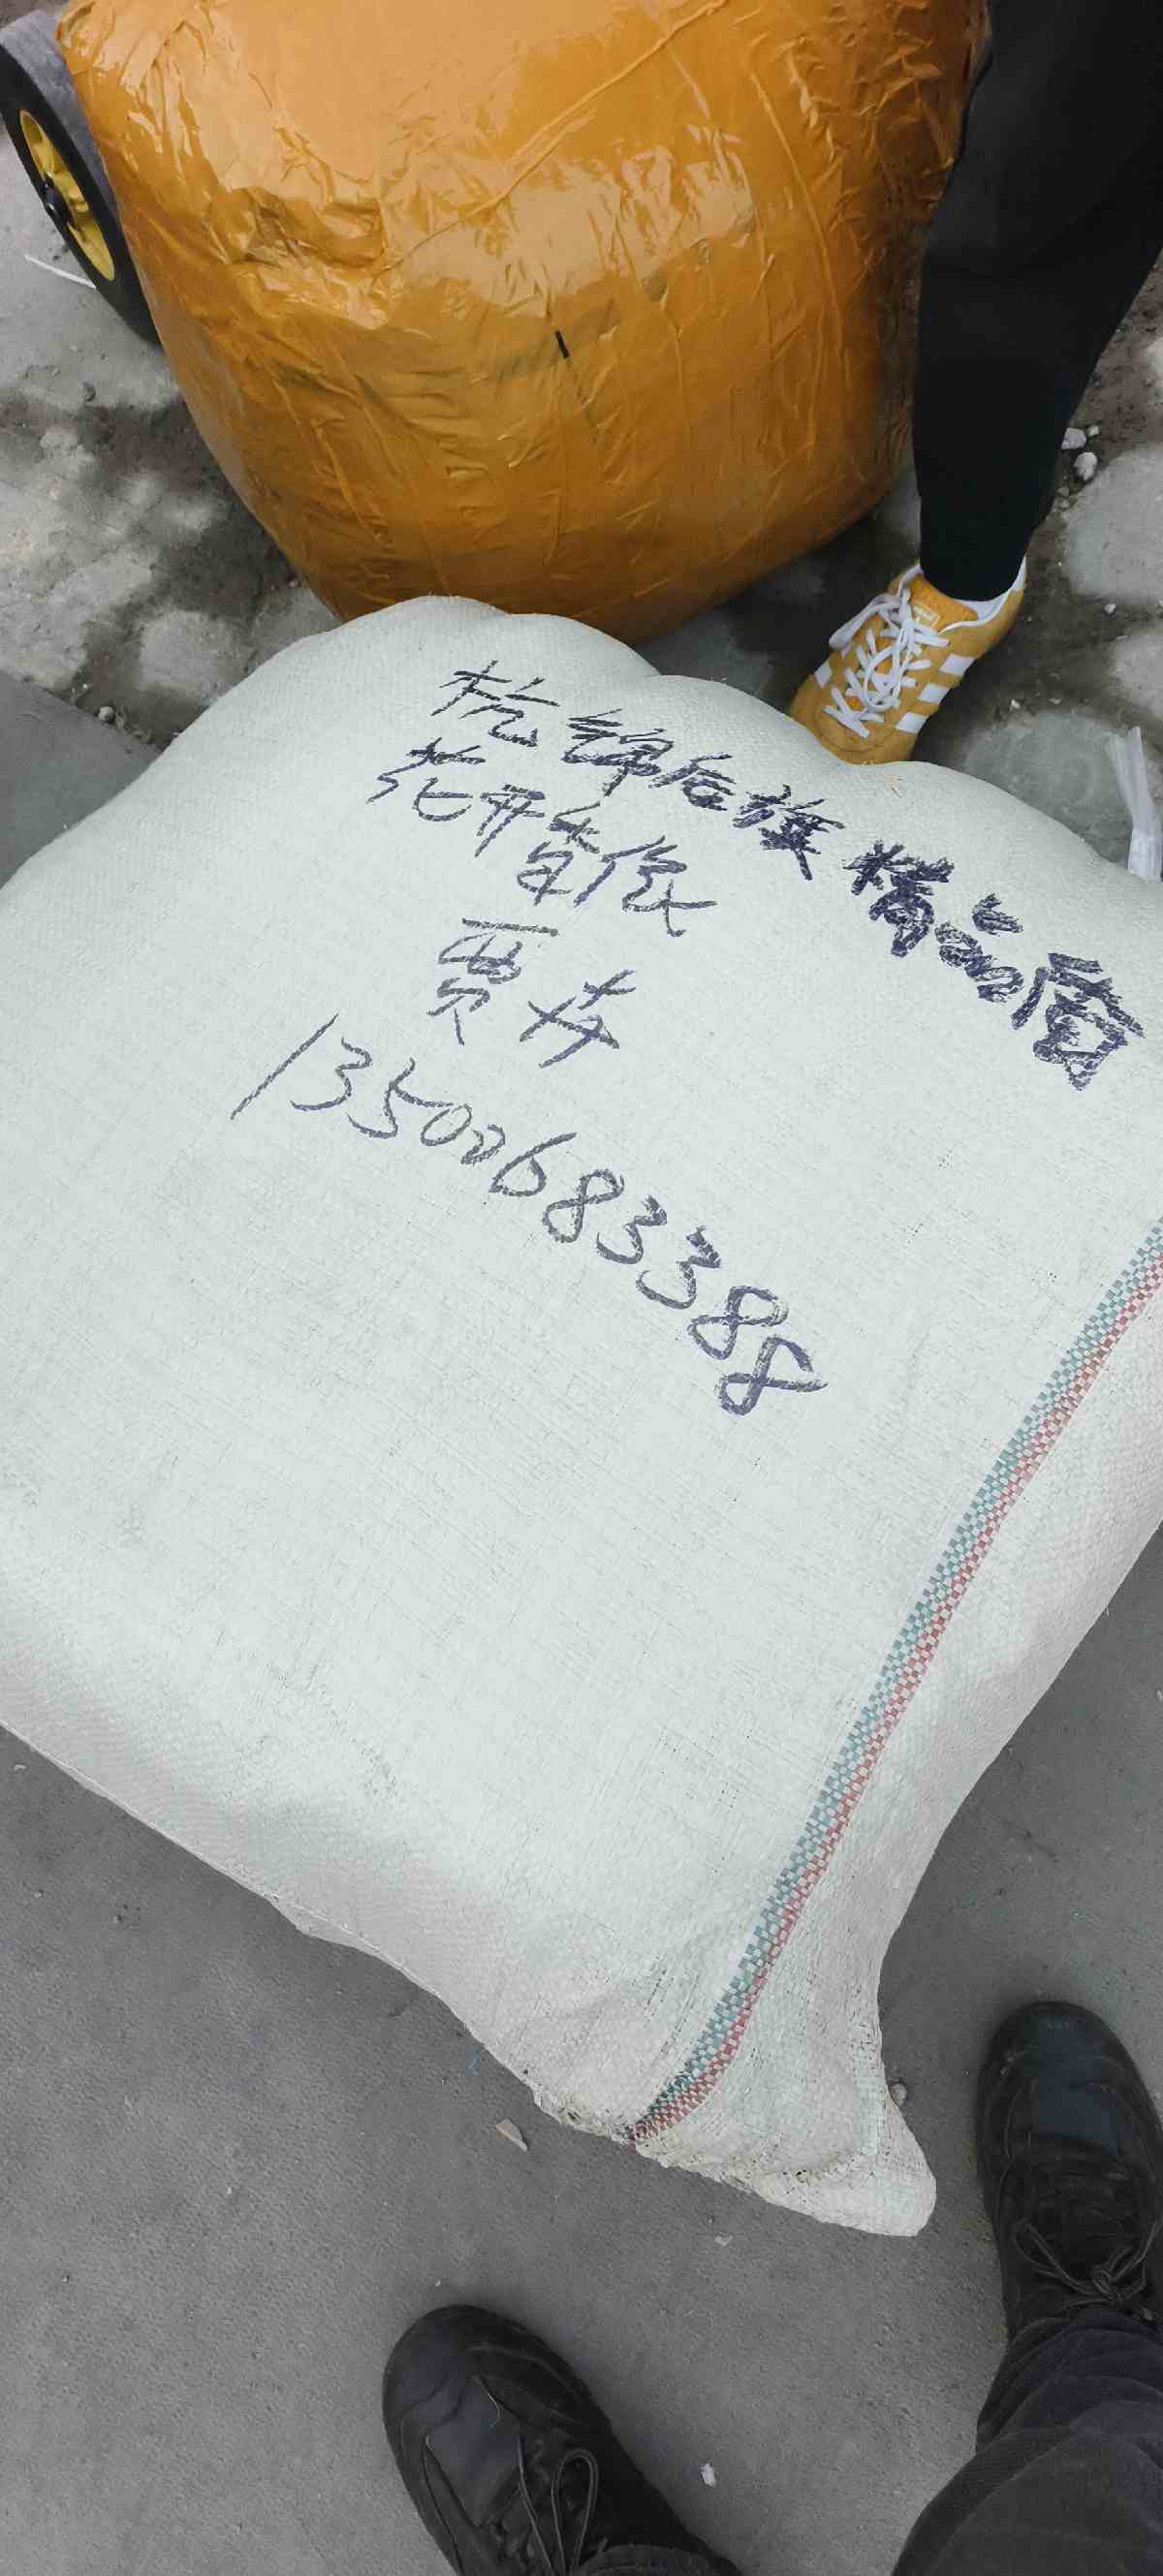 杭锦后旗 精品商
花开首依
贾芳
13500683388